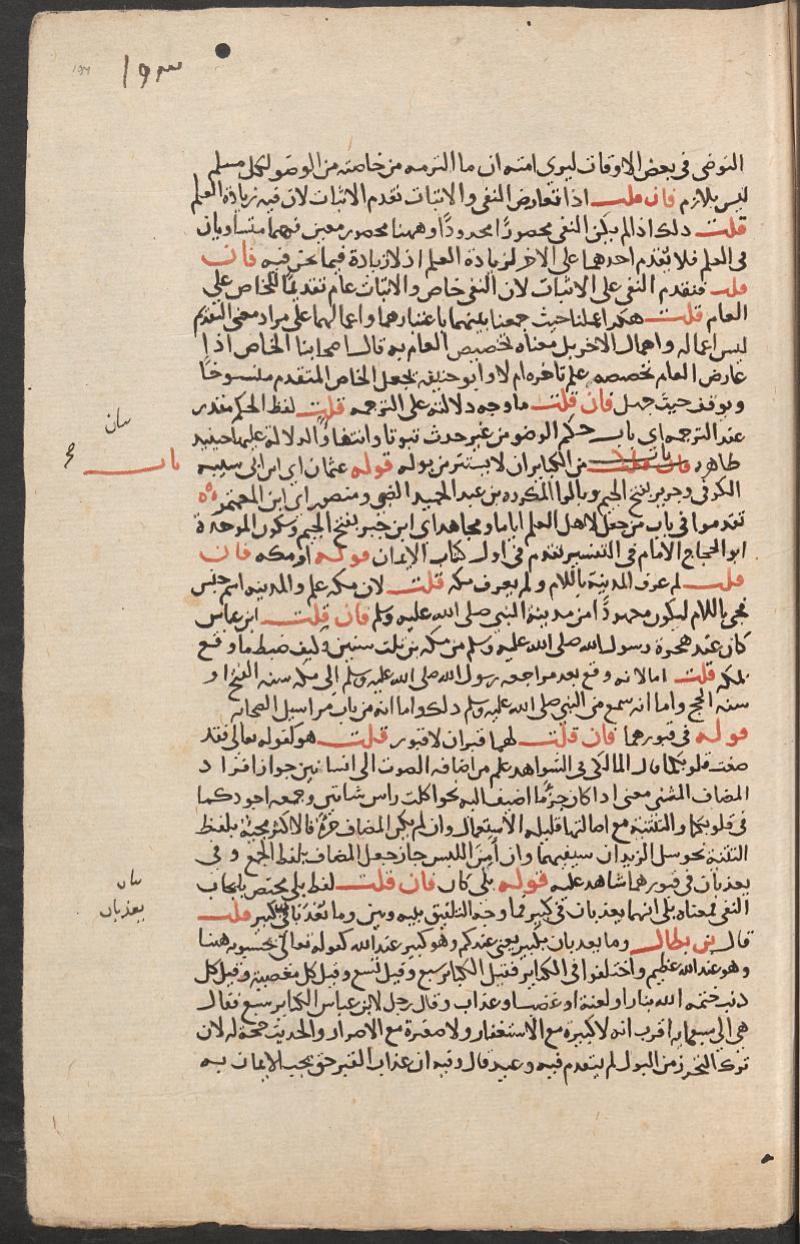 ١٩٣
التوضى فى بعض الاوقات ليرى امته ان ما التزمه من خاصته من الوضو لكل مسلم
ليس بلازم فان قلت اذا تعارض النفى والاثبات تقدم الاثبات لان فيه زيادة العلم
قلت ذلك اذا لم يكن النفى محصورا محدودا وههنا محصور معين فهما متساويان
فى العلم فلا يقدم احدهما على الاخر لزيادة العلم اذ لا زيادة فيما نحن فيه فان
قلت فتقدم النفى على الاثبات لان النفى خاص والاثبات عام تقديما للخاص على
العام قلت هكذا عملنا حيث جمعنا بينهما باعتبارهما واعمالهما على مراد معنى التقديم
ليس اعماله واهمال الاخر بل معناه تخصيص العام به قال اصحابنا الخاص اذا
عارض العام تخصصه علم تاخره ام لا وابو حنيفة يجعل الخاص المتقدم منسوخا
وتوقف حيث جهل فان قلت ما وجه دلالته على الترجمه قلت لفظ الحكم مقدر
عند الترجمه اى باب حكم الوضو من غير حدث ثبوتا وانتفاء والدلالة عليها حينئذ
ظاهره باب من الكباير ان لا يستتر من بوله قوله عثمان اى ابن ابى شيبه
الكوفى وجرير بفتح الجيم وبالراء المكرره بن عبد الحميد الضبى ومنصور اى ابن المعتمر
تقدموا فى باب من جعل لاهل العلم اياما ومجاهد اى ابن جبر بفتح الجيم وسكون الموحدة
ابو الحجاج الامام فى التفسير تقدم فى اول كتاب الايمان قوله او مكه فان
قلت لم عرف المدينة باللام ولم يعرف مكه قلت لان مكه علم والمدينه اسم جنس
فجى باللام ليكون معهودا من مدينة النبى صلى الله عليه وسلم فان قلت ابن عباس
كان عند هجرة رسول الله صلى الله عليه وسلم من مكه بن ثلث سنين فكيف ضبط ما وقع
بمكه قلت اما لانه وقع بعد مراجعه رسول الله صلى الله عليه وسلم الى مكه سنه الفتح او
سنه الحج واما انه سمع من النبى صلى الله عليه وسلم ذلك واما انه من باب مراسيل الصحابه
قوله فى قبورهما فان قلت لهما قبران لا قبور قلت هو كقوله تعالى فقد
صغت قلوبكما قال المالكى فى الشواهد علم من اضافه الصوت الى انسانين جواز افراد
المضاف المثنى معنى اذا كان جزء ما اضيف اليه نحو اكلت راس شاتين وجمعه اجود كما
فى قلوبكما والتثنية مع اصالتها قليله الاستعمال وان لم يكن المضاف جزءه فالاكثر مجيه بلفظ
التثنة نحو سل الزيدان سيفيهما وان امن اللبس جاز جعل المضاف بلفظ الجمع وفى
يعذبان فى قبورهما شاهد عليه قوله بلى كان فان قلت لفظ بلى مختص بايجاب
النفى فمعناه بلى انهما يعذبان فى كبير فما وجه التلفيق بينه وبين وما يعذبان فى كبير قلت
قال بن بطال وما يعذبان بكبير يعنى عندكم وهو كبير عند الله كقوله تعالى تحسبونه هينا
وهو عند الله عظيم واختلفوا فى الكباير فقيل الكباير سبع وقيل تسع وقيل كل معصية وقيل كل
ذنب ختمه الله بنار او لعنة او غضب او عذاب وقال رجل لابن عباس الكباير سبع فقال
هى الى سبعمايه اقرب انه لا كبيرة مع الاستغفار ولا صغيرة مع الاصرار والحديث حجة له لان
ترك التحرز من البول لم يتقدم فيه وعيد قال وفيه ان عذاب القبر حق يجب الايمان به
بيان
باب
بيان
يعذبان